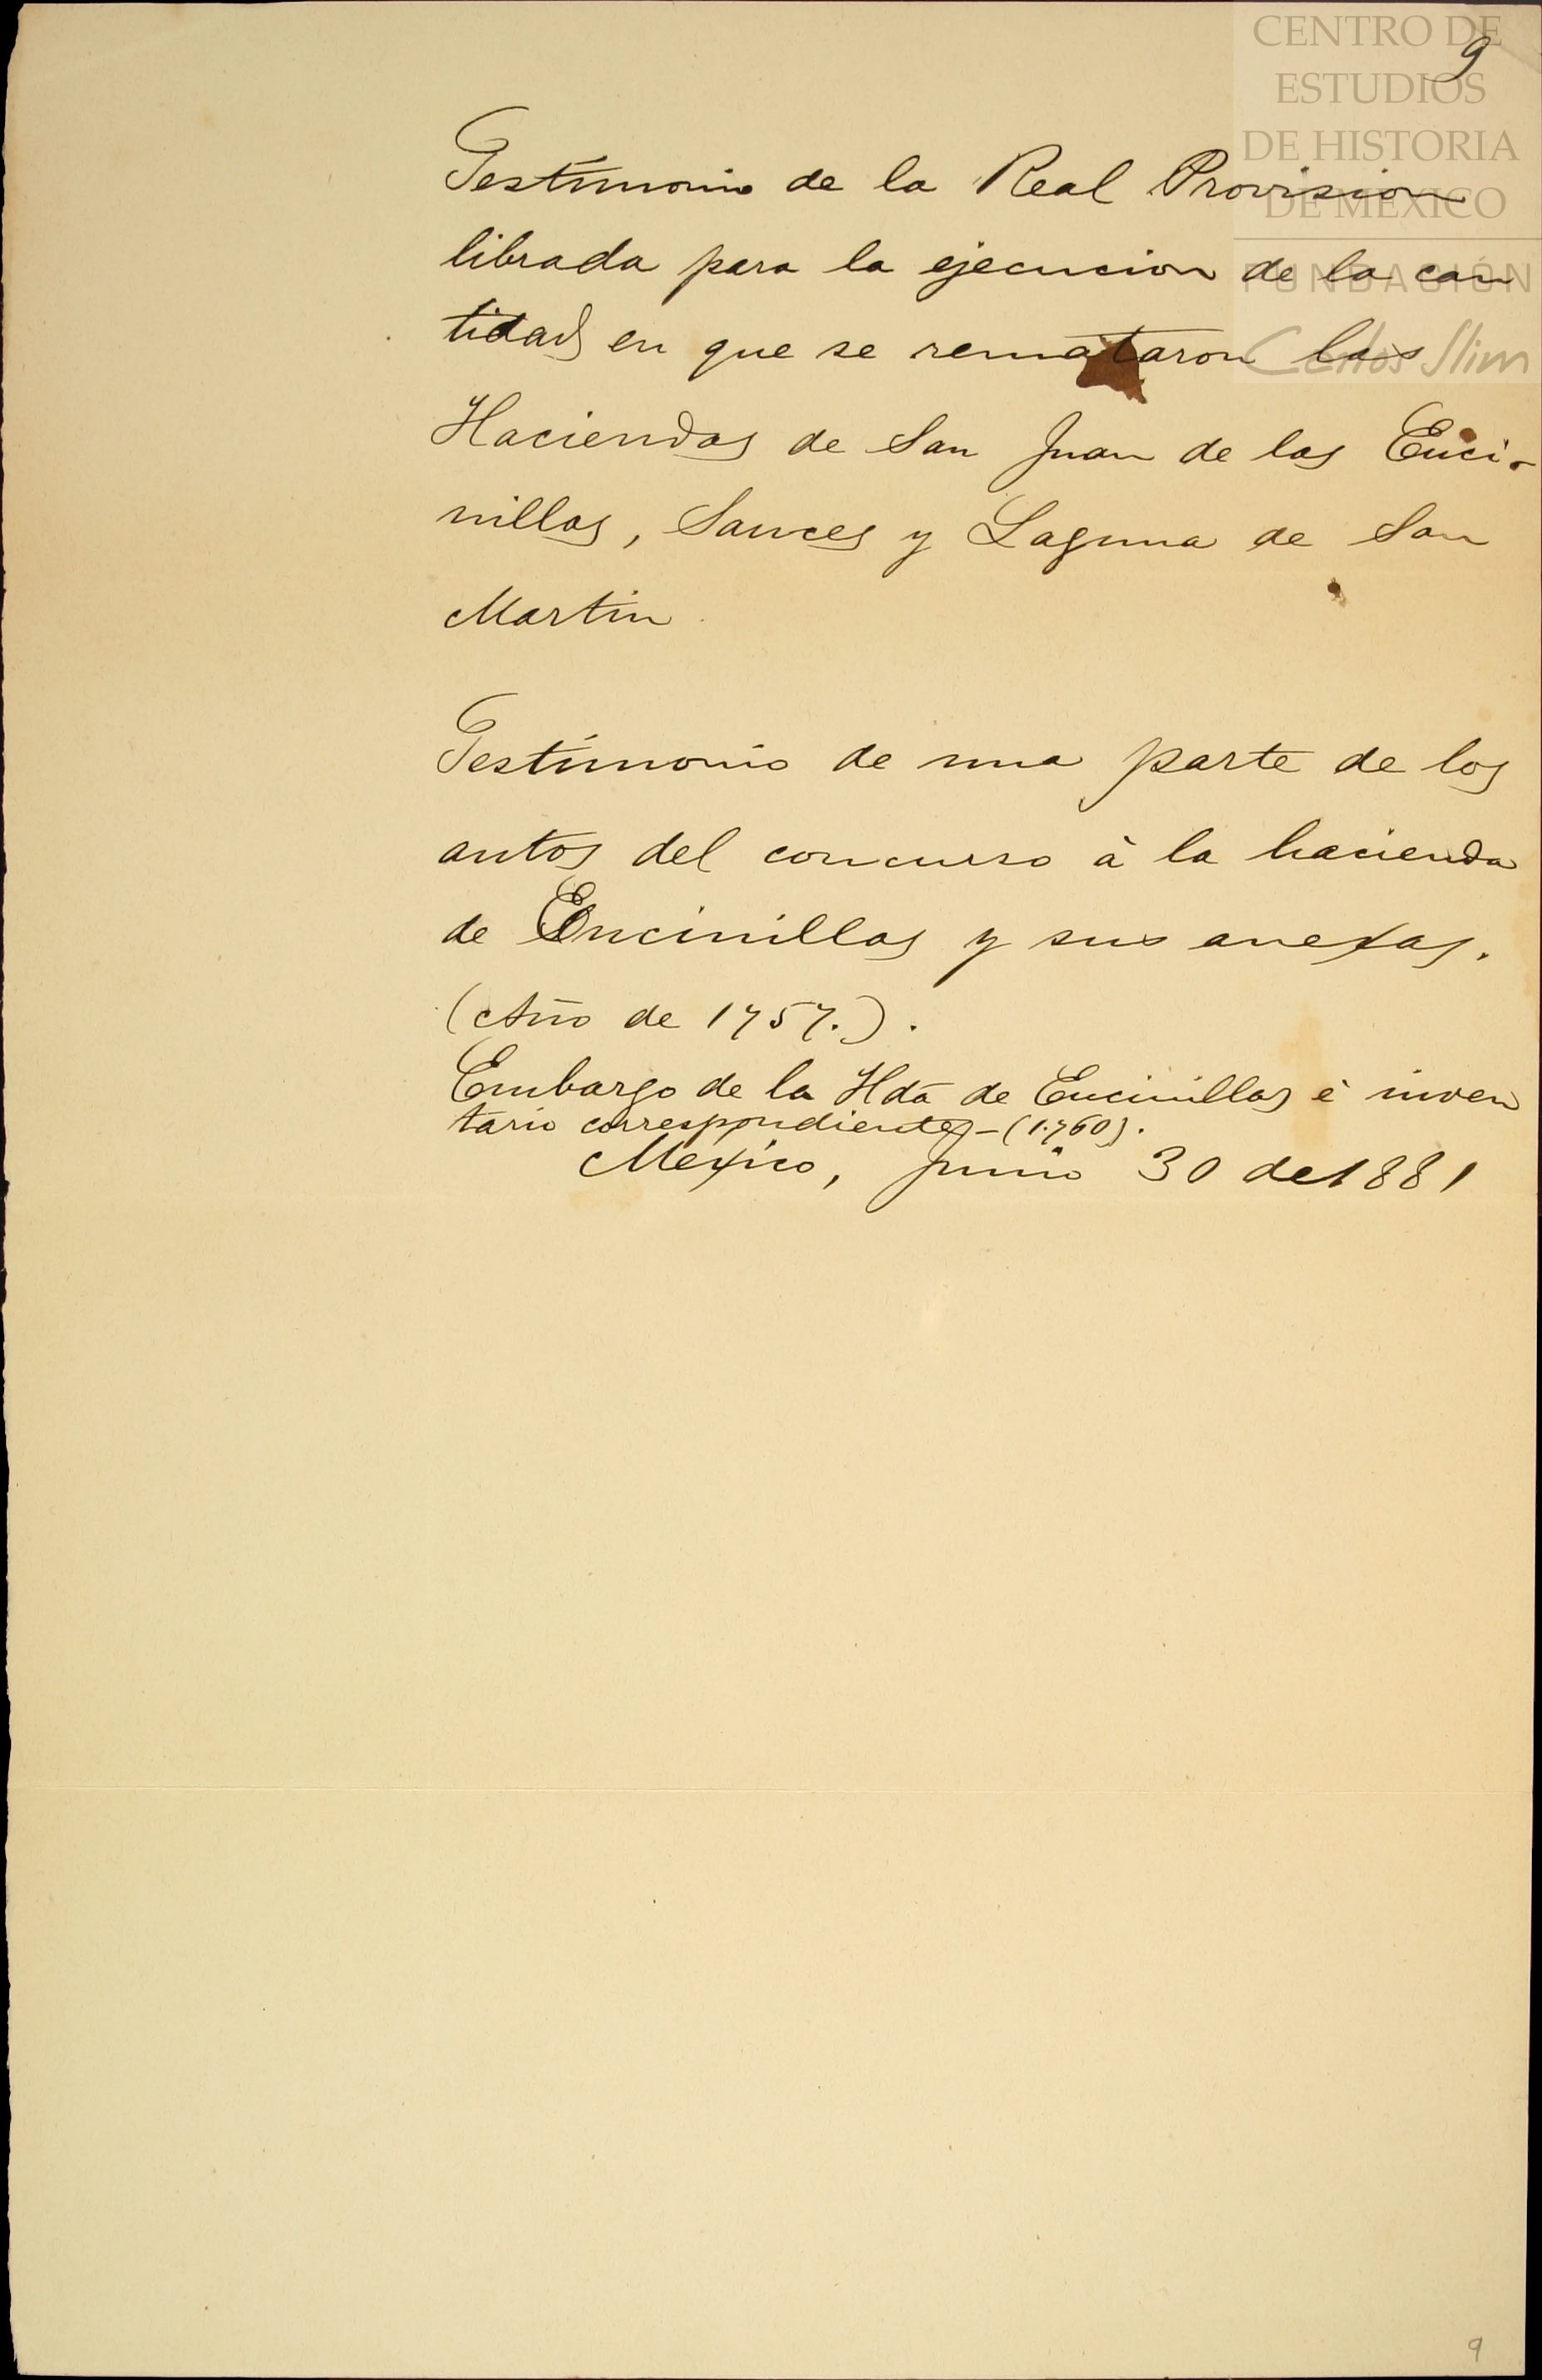 CENTRO DE
ESTUDIOS
DE HISTORIA
DE MÉXICO
FUNDACIÓN
Carlos Slim
9
Testimonio de la Real Provision
librada para la ejecucion de la can
tidad en que se remataron las
Haciendas de San Juan de las Enci-
nillas, Sauces y Laguna de San
Martin.
Testimonio de una parte de los
autos del concurso à la hacienda
de Encinillas y sus anexas.
(Año de 1757.).
Embargo de la Hda de Encinillas è inven
tario correspondiente - (1.760).
Mexico, Junio 30 de 1881
9